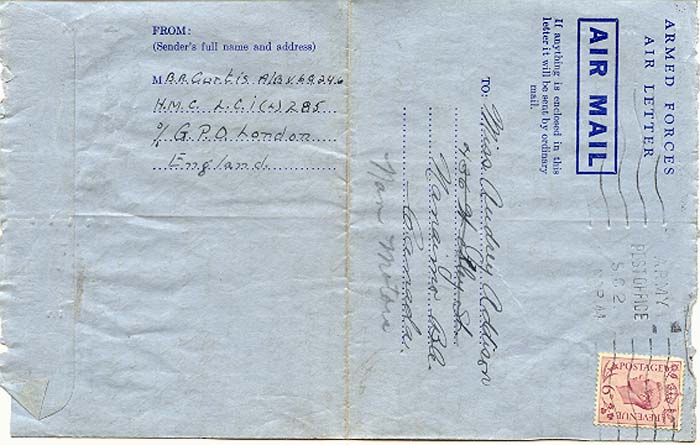 FROM:
(Sender's full name and address)
M B.A. Curtis. A/B V69246
H.M.C. L.C.I (L) 285
c/o G.P.O. London
England
ARMED FORCES
AIR LETTER
AIR MAIL
If anything is enclosed in this
letter it will be sent by ordinary
mail.
TO: Miss. Audrey Addison
Nanaimo B.C.
Canada.
Motors
ARMY
POST OFFICE
S.C.2
POSTAGE
6D
REVENUE